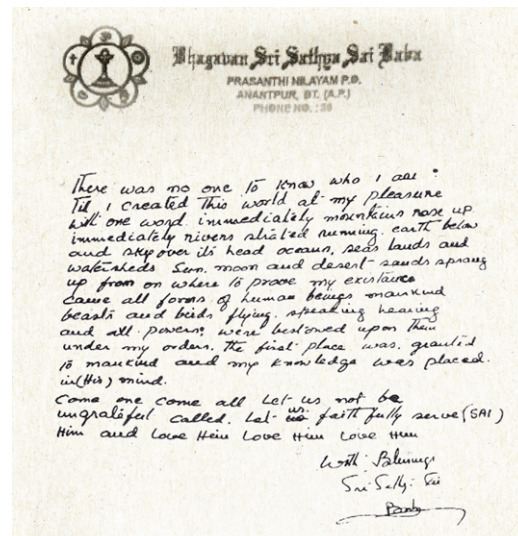 Bhagavan Sri Sathya Sai Baba
PRASANTHI NILAYAM P.O.
ANANTPUR, DT. (A.P.)
PHONE NO. : 30
There was no one To Know who I am :
Til I created This world at my pleasure
with one word. immediately mountains rose up
immediately rivers started running. earth below
and sky over its head oceans, seas lands and
watersheds Sun, moon and desert sands sprang
up from on where to prove my existance
came all forms of human beings mankind
beasts and birds flying. speaking hearing
and all powers were bestowed upon Them
under my orders. the first place was. granted
To mankind and my Knowledge was placed.
in (His) mind.
Come one come all Let us not be
ungrateful called. Let us faithfully serve (SAI)
Him and Love Him Love Him Love Him
With Blessings
Sri Sathya Sai
Baba